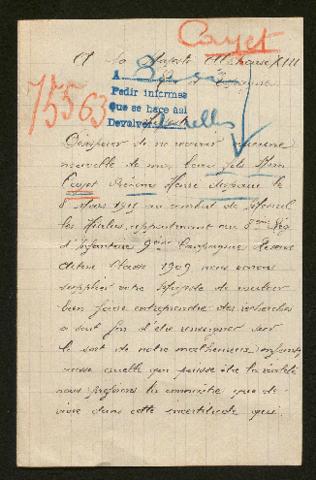 Cayet
A Sa Majesté Alphonse XIII
75563
A
Pedir informes
Que se hace asi
Devolver
Désespérée de ne recevoir aucune
nouvelle de mon beau fils
Cayet disparu le
8 Mars 1915 au combat de
les Hurlus, appartenant au
d'Infanterie 9ème Compagnie Réserve
active Classe 1909 nous venons
supplier votre Majesté de vouloir
bien faire entreprendre des recherches
a seul fin d'être renseigner sur
le sort de notre malheureux enfant,
quelle que puisse être la vérité
nous préférons la connaître que de
vivre dans cette incertitude qui